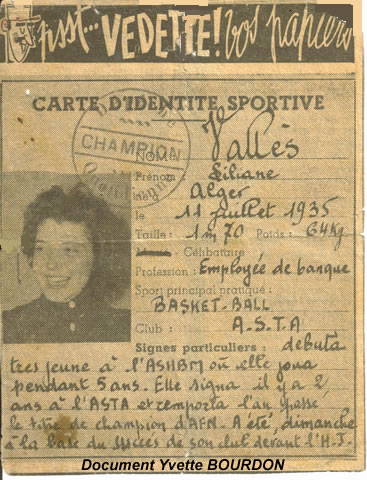 psst... VEDETTE! vos papiers
CARTE D'IDENTITE SPORTIVE
CHAMPION
NOM : Vallès
Prénom : Liliane
Né à Alger
le 11 juillet 1935
Taille : 1m70 Poids : 64Kg
Célibataire
Profession : Employée de banque
Sport principal pratiqué :
BASKET-BALL
Club : A.S.T.A
Signes particuliers : débuta
très jeune à l'ASHBM où elle joua
pendant 5 ans. Elle signa il y a 2
ans à l'ASTA et remporta l'an passé
le titre de champion d'AFN. A été, dimanche
à la base du succès de son club devant l'H.J.
Document Yvette BOURDON